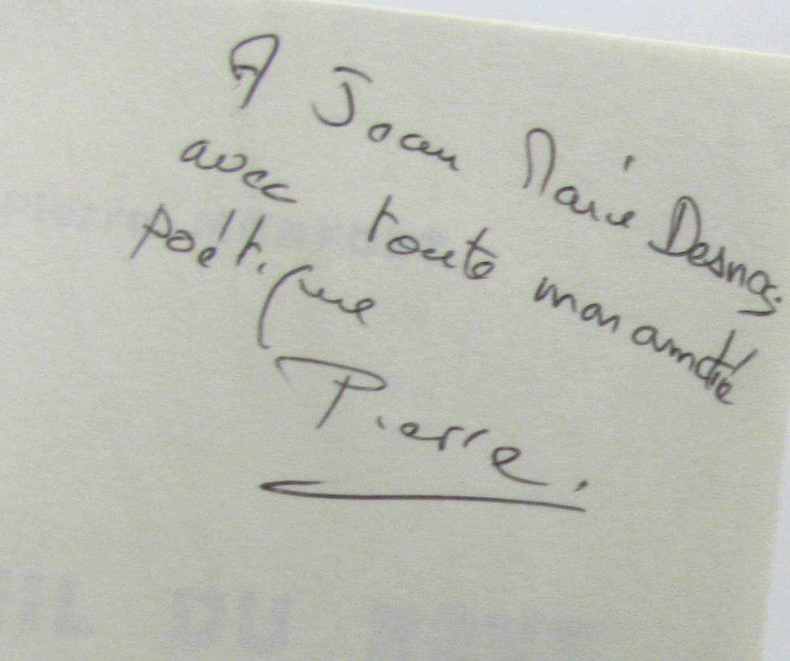 A Jean Marie Desnos.
avec toute mon amitié
poétique
Pierre.